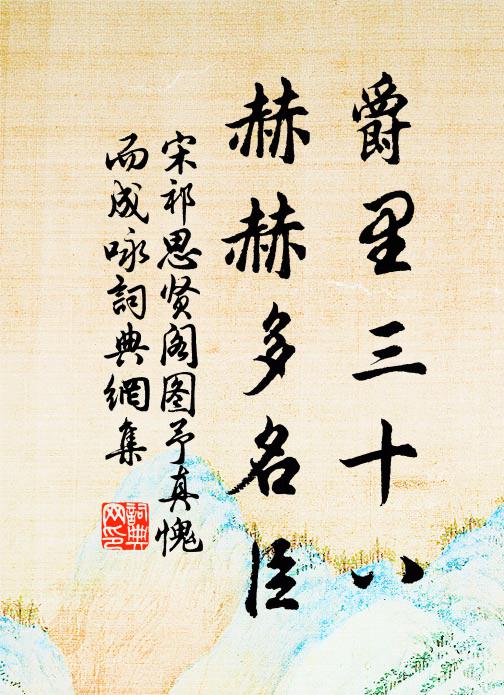 爵里三十八
赫赫多名臣
宋祁思贤阁图予真愧
而成咏詞典網集
詞典网印